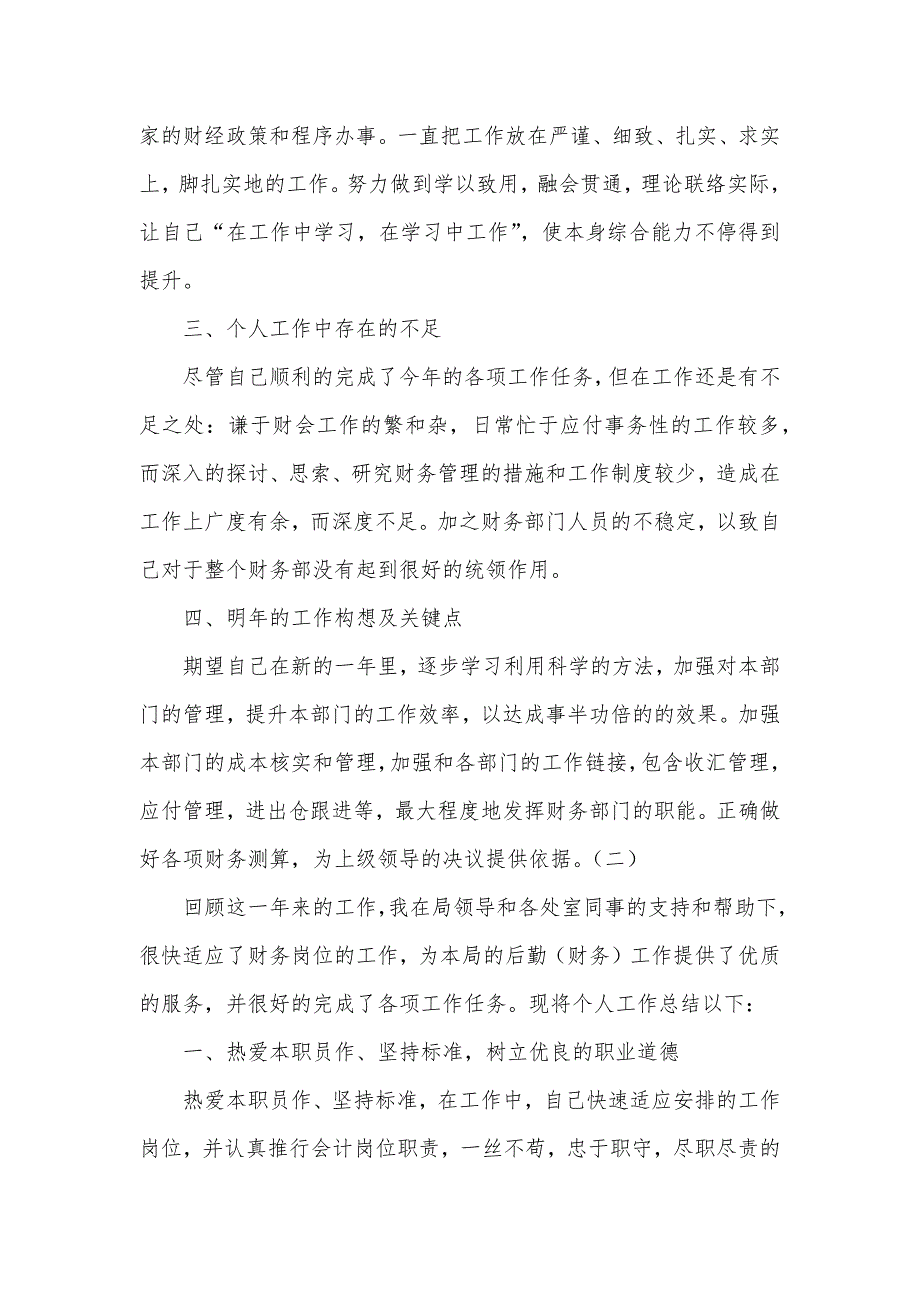 家的财经政策和程序办事。一直把工作放在严谨、细致、扎实、求实
上，脚扎实地的工作。努力做到学以致用，融会贯通，理论联络实际，
让自己“在工作中学习，在学习中工作”，使本身综合能力不停得到
提升。
三、个人工作中存在的不足
尽管自己顺利的完成了今年的各项工作任务，但在工作还是有不
足之处：谦于财会工作的繁和杂，日常忙于应付事务性的工作较多，
而深入的探讨、思索、研究财务管理的措施和工作制度较少，造成在
工作上广度有余，而深度不足。加之财务部门人员的不稳定，以致自
己对于整个财务部没有起到很好的统领作用。
四、明年的工作构想及关键点
期望自己在新的一年里，逐步学习利用科学的方法，加强对本部
门的管理，提升本部门的工作效率，以达成事半功倍的的效果。加强
本部门的成本核实和管理，加强和各部门的工作链接，包含收汇管理，
应付管理，进出仓跟进等，最大程度地发挥财务部门的职能。正确做
好各项财务测算，为上级领导的决议提供依据。（二）
回顾这一年来的工作，我在局领导和各处室同事的支持和帮助下，
很快适应了财务岗位的工作，为本局的后勤（财务）工作提供了优质
的服务，并很好的完成了各项工作任务。现将个人工作总结以下：
一、热爱本职员作、坚持标准，树立优良的职业道德
热爱本职员作、坚持标准，在工作中，自己快速适应安排的工作
岗位，并认真推行会计岗位职责，一丝不苟，忠于职守，尽职尽责的